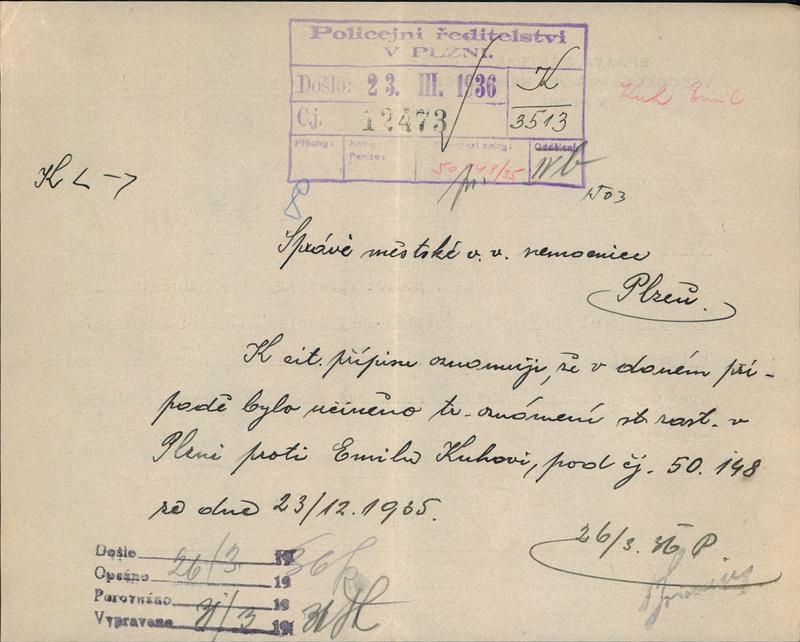 Policejní ředitelství
V PLZNI.
Došlo: 23. III. 1936
K
3513
Kuh Emil
Čj. 12473
Přílohy:
Peníze:
Oddělení
50.148/35
K
Správě městské v. v. nemocnice
Plzeň.
K cit. přípisu oznamuji, že v daném pří-
padě bylo učiněno tr. oznámení st. zast. v
Plzni proti Emilu Kuhovi, pod čj. 50.148
ze dne 23/12.1935.
26/3. 36 P
Došlo 19
Opsáno 26/3 19 36
Porovnáno 19
Vypraveno 31/3 19